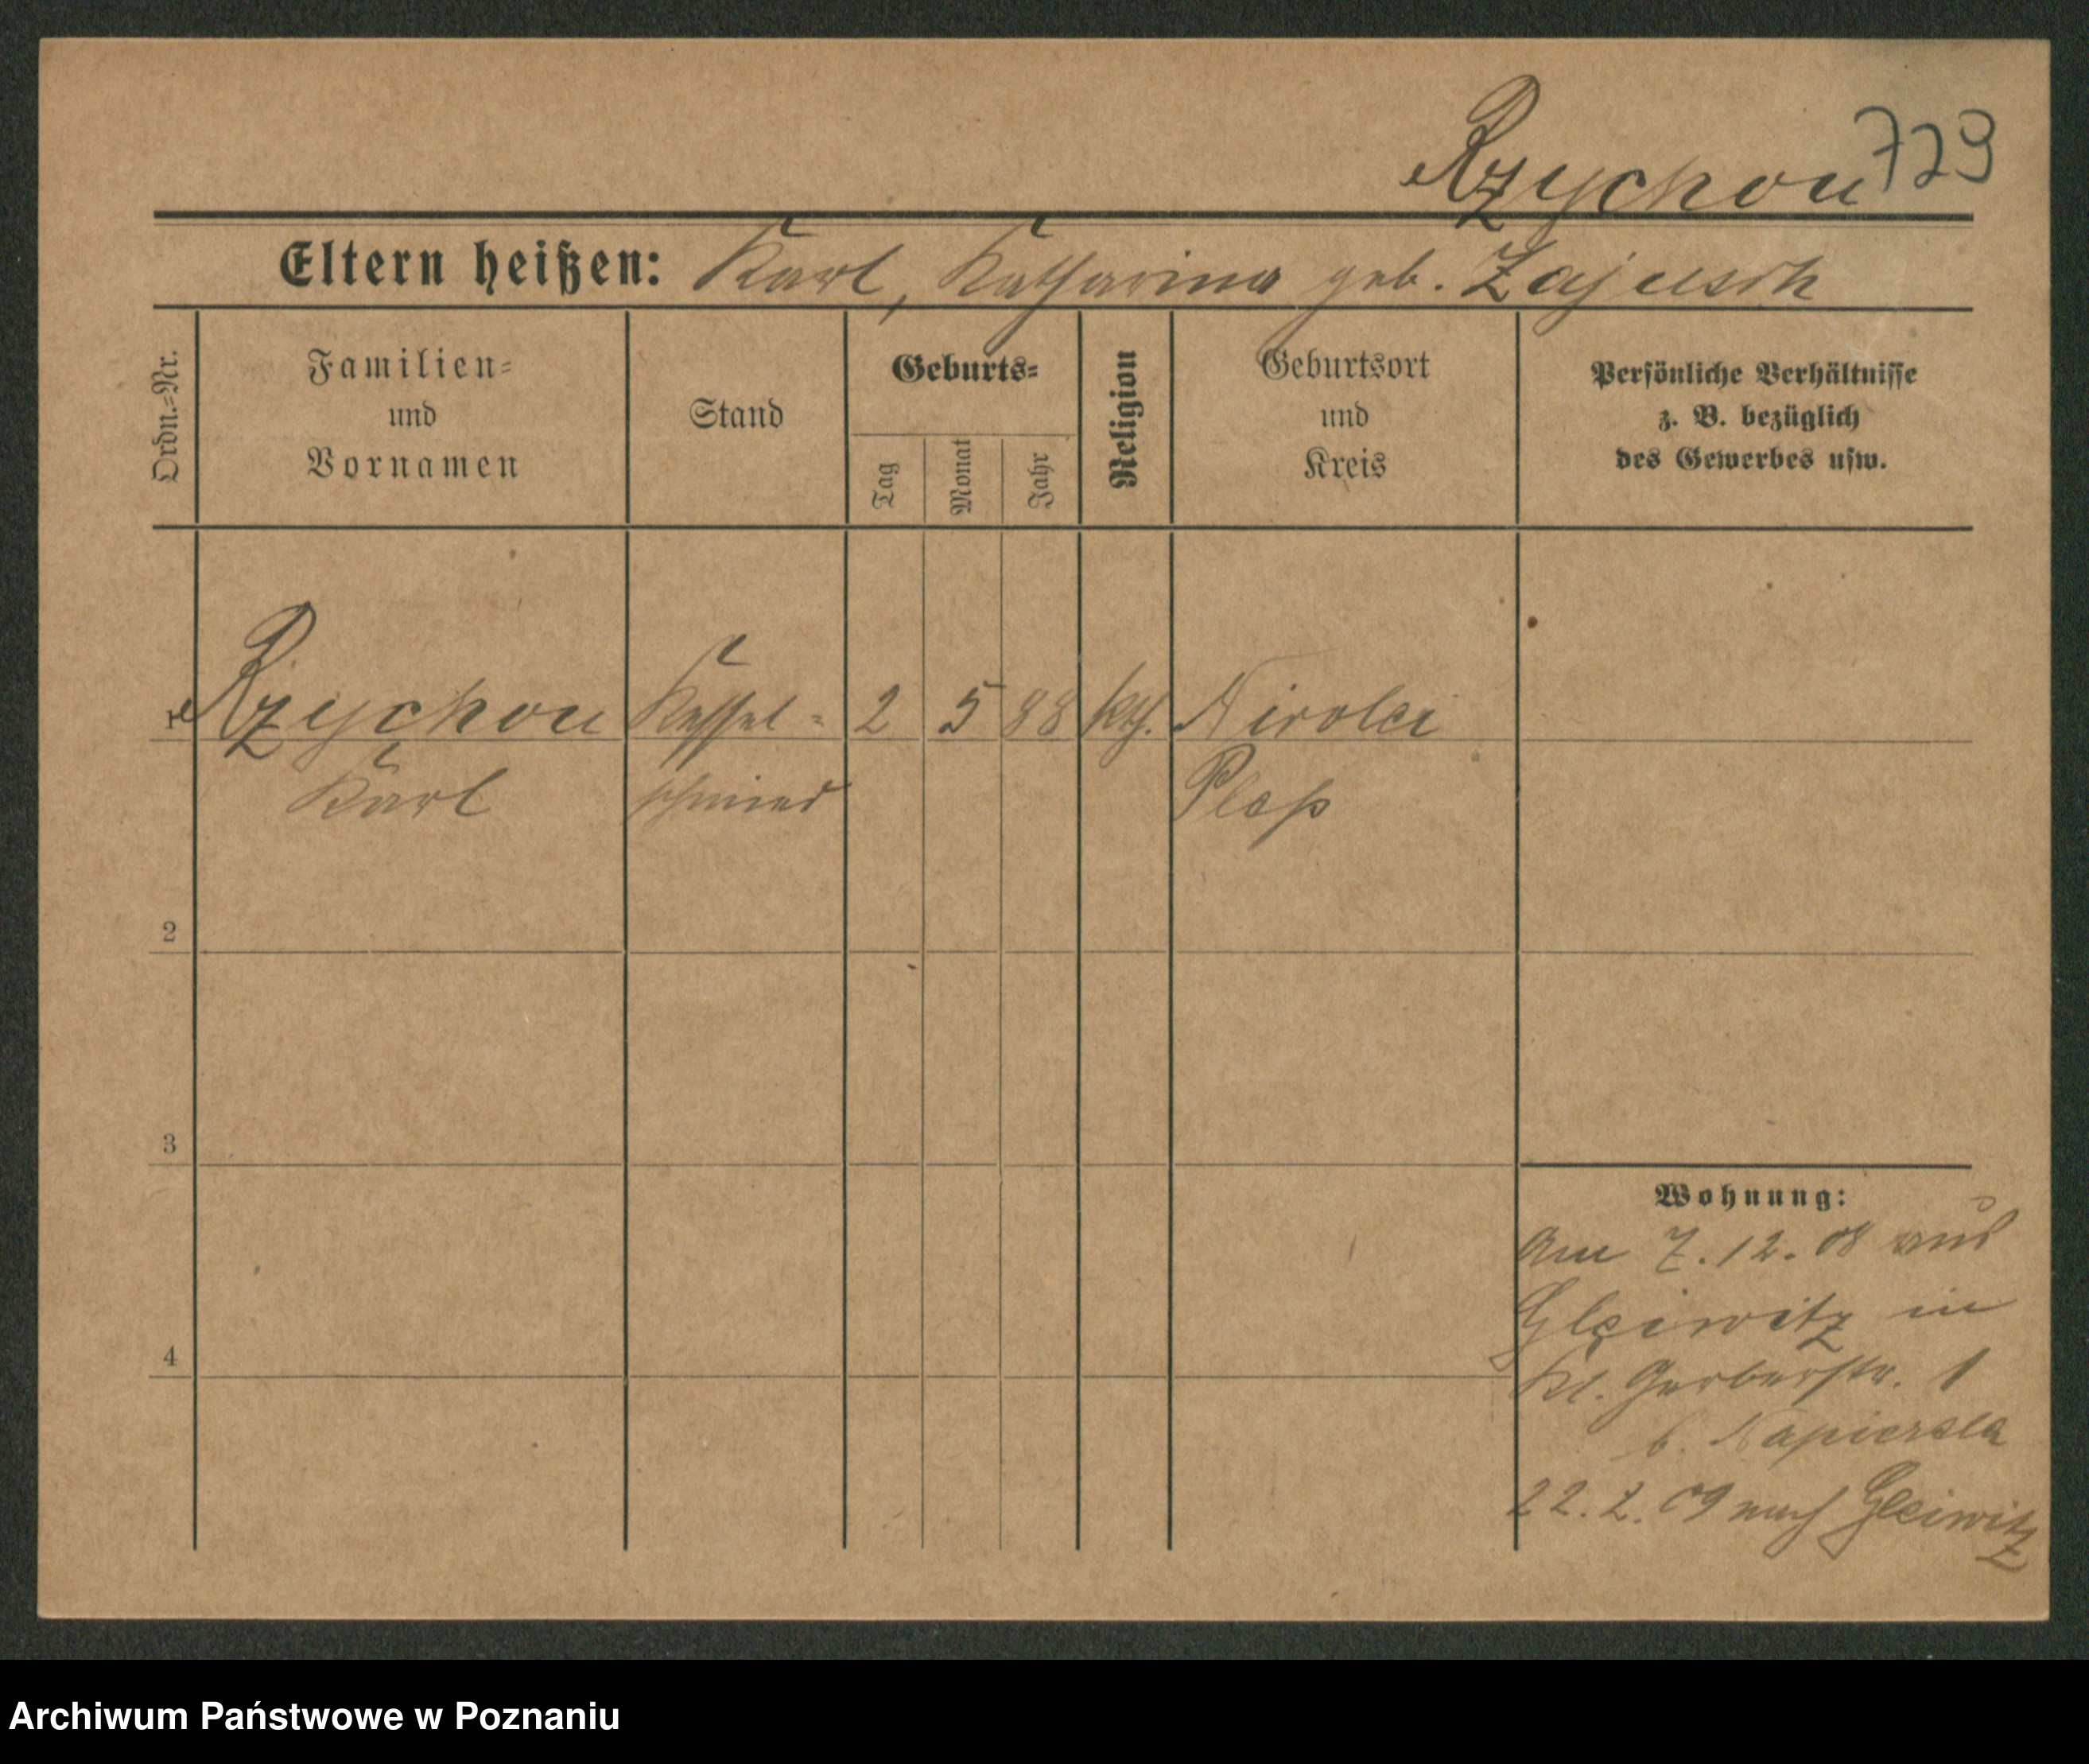 Rzychou 729
Eltern heißen: Karl, Katharina geb. Zajusch
Ordn.-Nr.
Familien- und Vornamen
Stand
Geburts-
Tag Monat Jahr
Religion
Geburtsort und Kreis
Persönliche Verhältnisse
z. B. bezüglich
des Gewerbes usw.
1 Rzychou Kessel- 2 5 88 kth. Nicolei
Karl schmied Pleß
2
3
4
Wohnung:
Am 7.12.08 aus
Gleiwitz in
Kl. Gerberstr. 1
b. Napierala
22.2.09 nach Gleiwitz
Archiwum Państwowe w Poznaniu